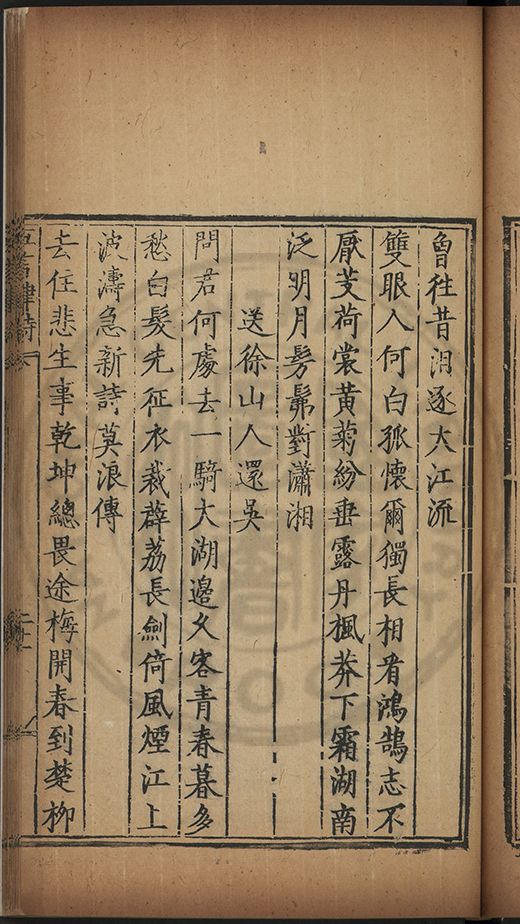 曾往昔泪逐大江流
雙眼人何白孤懷爾獨長相看鴻鵠志不
厭芰荷裳黃菊紛垂露丹楓莽下霜湖南
泛明月髣髴對瀟湘
送徐山人還吳
問君何處去一騎大湖邉久客青春暮多
愁白髮先征衣裁薜荔長劍倚風煙江上
波濤急新詩莫浪傳
去住悲生事乾坤總畏途梅開春到楚柳
律詩